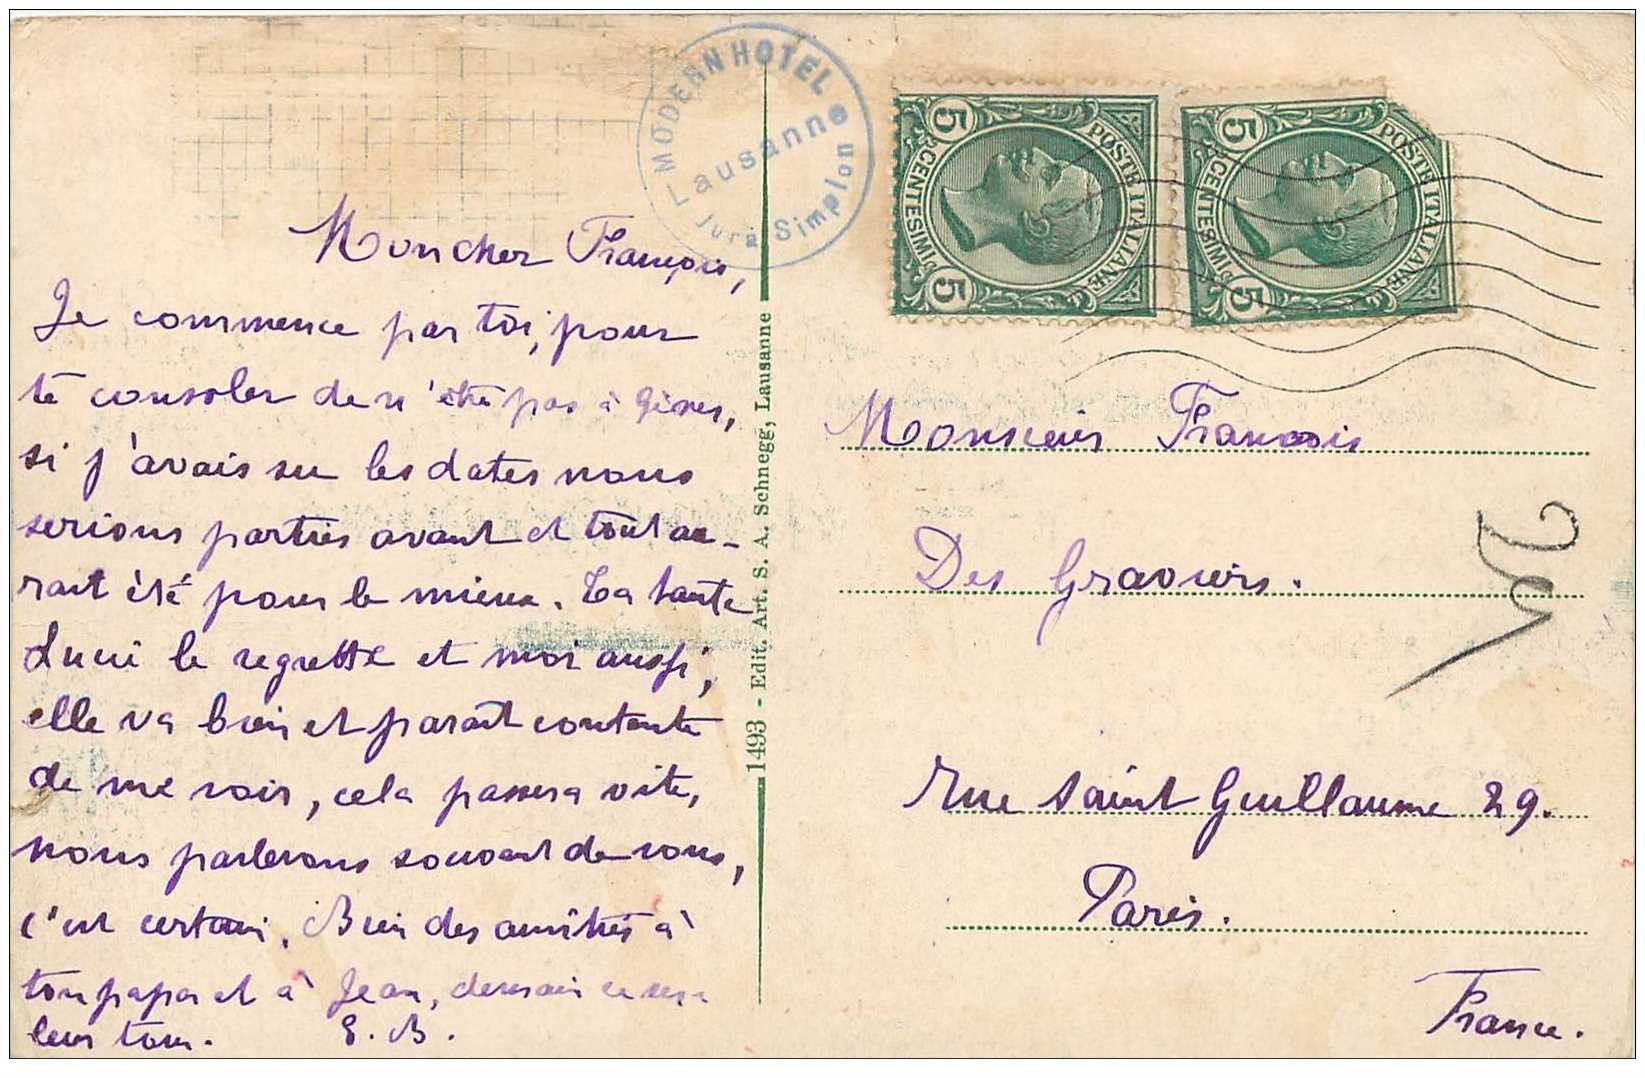 MODERN HOTEL
Lausanne
Jura Simplon
POSTE ITALIANE
5 CENTESIMI 5
POSTE ITALIANE
5 CENTESIMI 5
Mon cher François,
Je commence par toi, pour
te consoler de n'être pas à Gênes,
si j'avais su les dates nous
serions partis avant et tout au-
rait été pour le mieux. Ta tante
Lucie le regrette et moi aussi,
elle va bien et parait contente
de me voir, cela passera vite,
nous parlerons souvent de vous,
c'est certain. Bien des amitiés à
ton papa et à Jean, demain ce sera
leur tour. E. B.
1493 - Edit. Art. S. A. Schnegg, Lausanne
Monsieur François
Des Graviers.
rue Saint Guillaume 29.
Paris.
France.